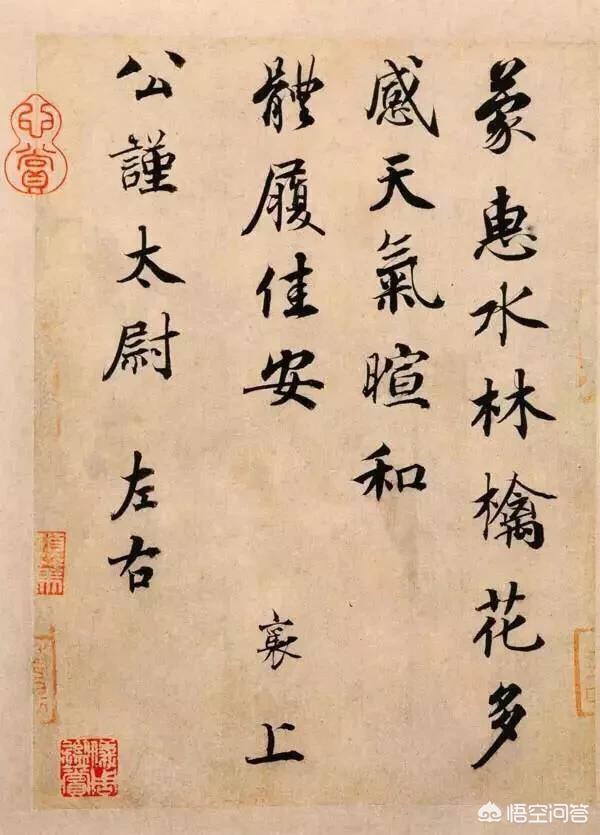 蒙惠水林檎花多
感天氣暄和
體履佳安 襄上
公謹太尉 左右
悟空问答